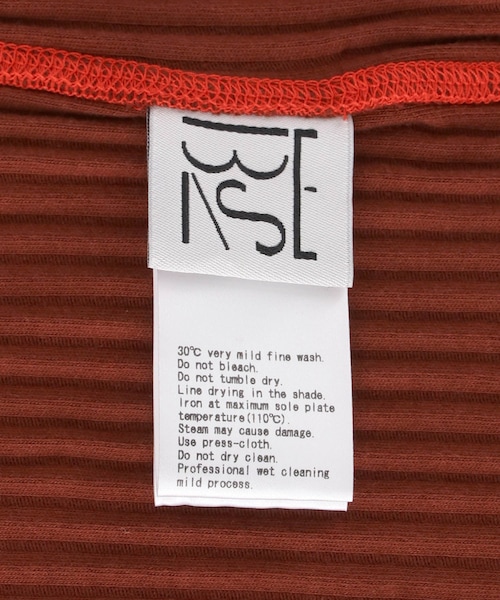 30℃ very mild fine wash.
Do not bleach.
Do not tumble dry.
Line drying in the shade.
Iron at maximum sole plate
temperature(110℃).
Steam may cause damage.
Use press-cloth.
Do not dry clean.
Professional wet cleaning
mild process.